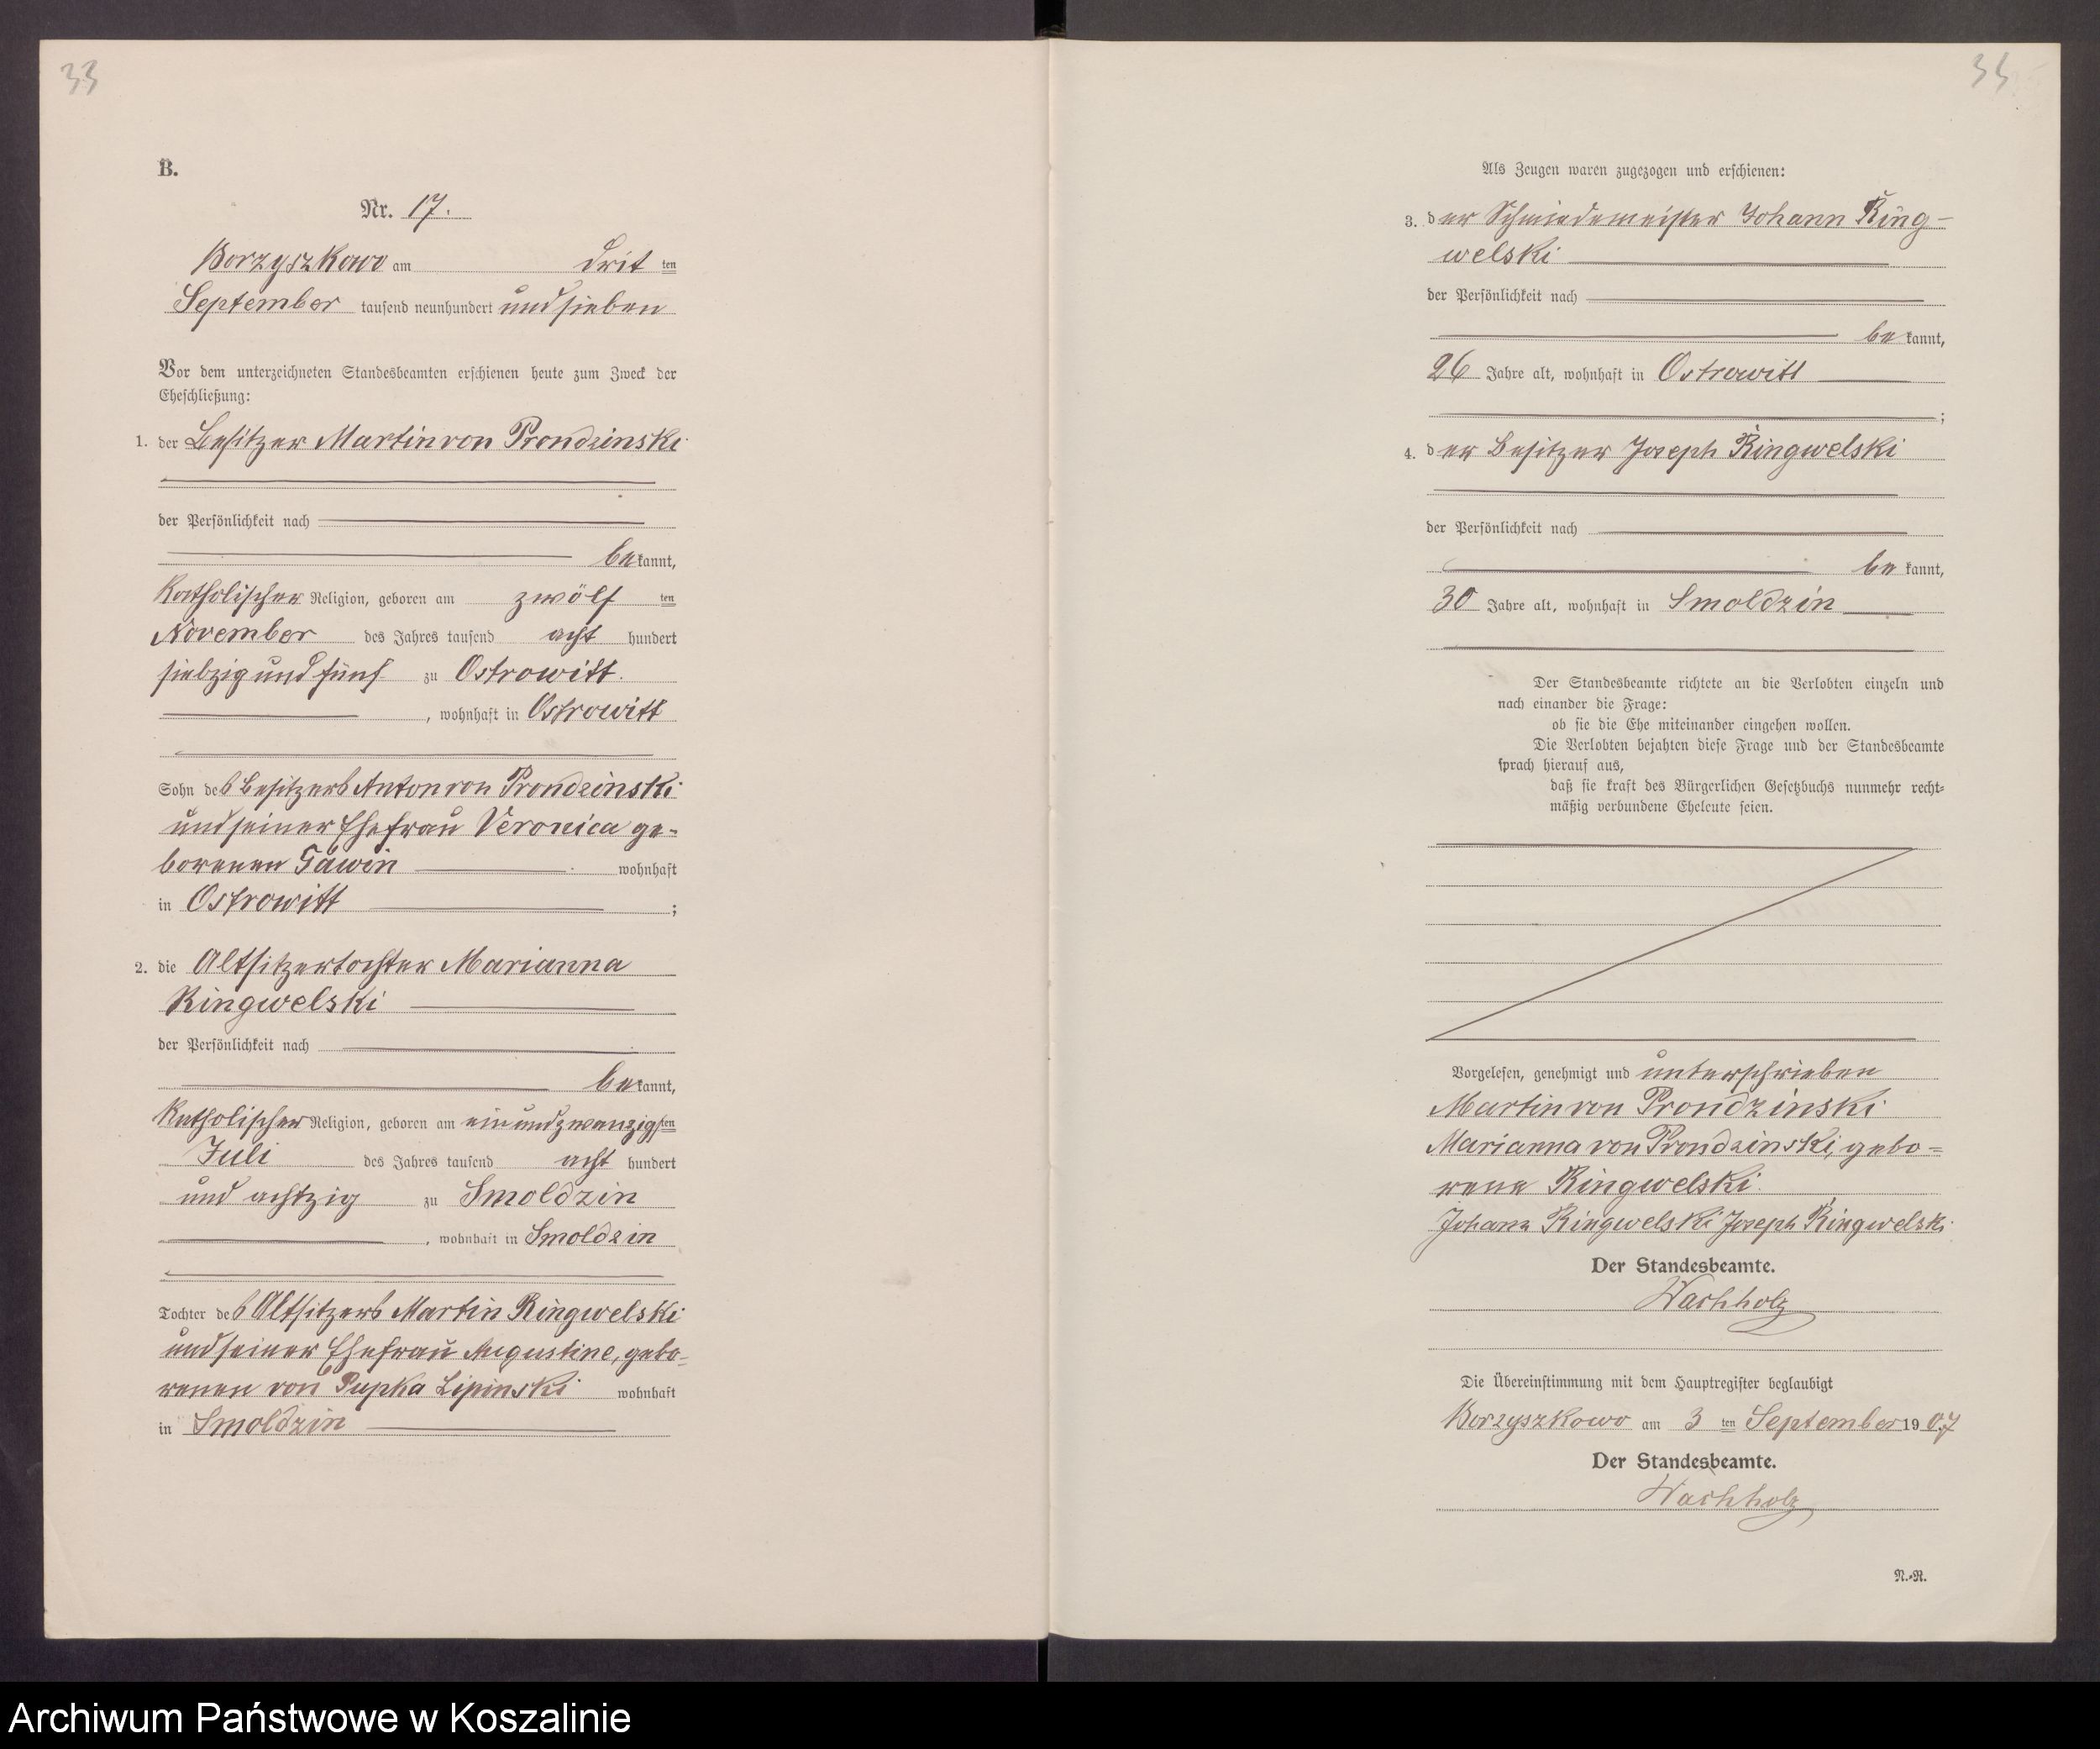 33
B.
Nr. 17.
Borzyszkowo am dritten
September tausend neunhundert und sieben
Vor dem unterzeichneten Standesbeamten erschienen heute zum Zweck der
Eheschließung:
1. der Besitzer Martin von Prondzinski
der Persönlichkeit nach
bekannt,
katholischer Religion, geboren am zwölften
November des Jahres tausend acht hundert
siebzig und fünf zu Ostrowitt.
, wohnhaft in Ostrowitt
Sohn des Besitzers Anton von Prondzinski
und seiner Ehefrau Veronica ge-
borenen Gawin wohnhaft
in Ostrowitt ;
2. die Altsitzertochter Marianna
Ringwelski
der Persönlichkeit nach
bekannt,
katholischer Religion, geboren am ein und zwanzigsten
Juli des Jahres tausend acht hundert
und achtzig zu Smoldzin
, wohnhaft in Smoldzin
Tochter des Altsitzers Martin Ringwelski
und seiner Ehefrau Augustine, gebo-
renen von Pupka Lipinski wohnhaft
in Smoldzin
Als Zeugen waren zugezogen und erschienen:
3. der Schmiedemeister Johann Ring-
welski
der Persönlichkeit nach
bekannt,
26 Jahre alt, wohnhaft in Ostrowitt
;
4. der Besitzer Joseph Ringwelski
der Persönlichkeit nach
bekannt,
30 Jahre alt, wohnhaft in Smoldzin
Der Standesbeamte richtete an die Verlobten einzeln und
nach einander die Frage:
ob sie die Ehe miteinander eingehen wollen.
Die Verlobten bejahten diese Frage und der Standesbeamte
sprach hierauf aus,
daß sie kraft des Bürgerlichen Gesetzbuchs nunmehr recht-
mäßig verbundene Eheleute seien.
Vorgelesen, genehmigt und unterschrieben
Martin von Prondzinski
Marianna von Prondzinski, gebo-
rene Ringwelski.
Johann Ringwelski Joseph Ringwelski
Der Standesbeamte.
Wachholz
Die Übereinstimmung mit dem Hauptregister beglaubigt
Borzyszkowo am 3 ten September 1907
Der Standesbeamte.
Wachholz
N.-R.
Archiwum Państwowe w Koszalinie